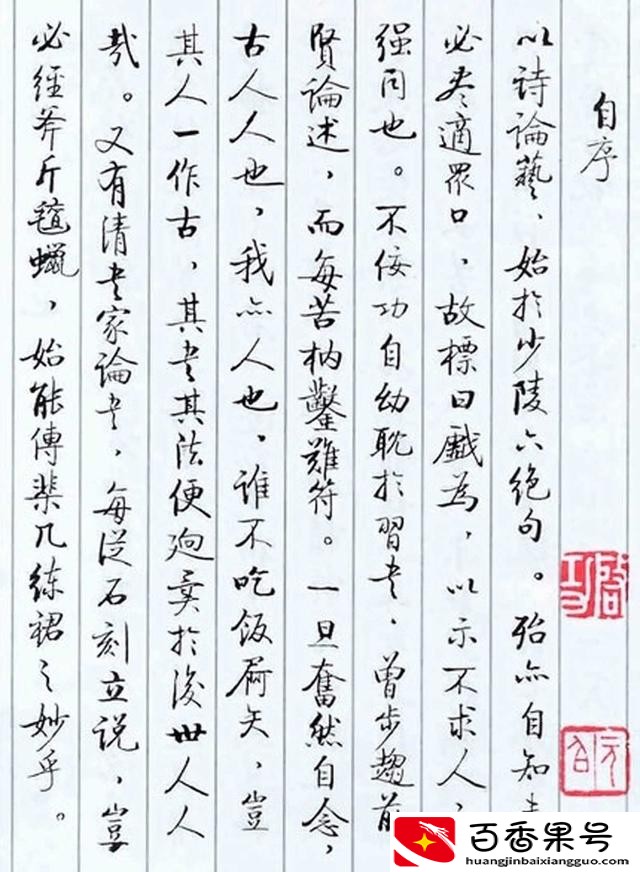 自序
以詩論藝、始於少陵六絕句。殆亦自知未
必盡適眾口,故標曰戲為,以示不求人,
强同也。不佞功自幼耽於習書,曾步趨前
賢論述,而每苦枘鑿難符。一旦奮然自念,
古人人也,我亦人也,誰不吃飯屙矢,豈
其人一作古,其書其法便迥異於後世人人
哉。又有清書家論書,每從石刻立說,豈
必經斧斤氈蠟,始能傳棐几練裙之妙乎。
啟功
元白
百香果号
huangjinbaixiangguo.com